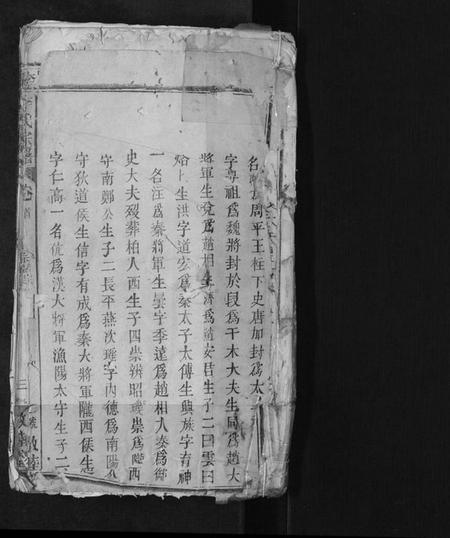 名 爲周平王柱下史唐加封爲太
字尊祖爲魏將封於段爲干木大夫生同爲趙大
將軍生兌爲趙相生 爲趙安君生子二曰雲曰
恪 生洪字道宏爲秦太子太傅生興族字育神
一名汪爲秦將軍生曇字季遠爲趙相入秦爲御
史大夫歿葬柏人西生子四崇辨昭璣崇爲隴西
守南鄭公生子二長平燕次瑤字內德爲南陽
守狄道侯生信字有成爲秦大將軍隴西侯生
字仁高一名伉爲漢大將軍漁陽太守生子二
氏宗譜
卷 首
三
敦睦堂